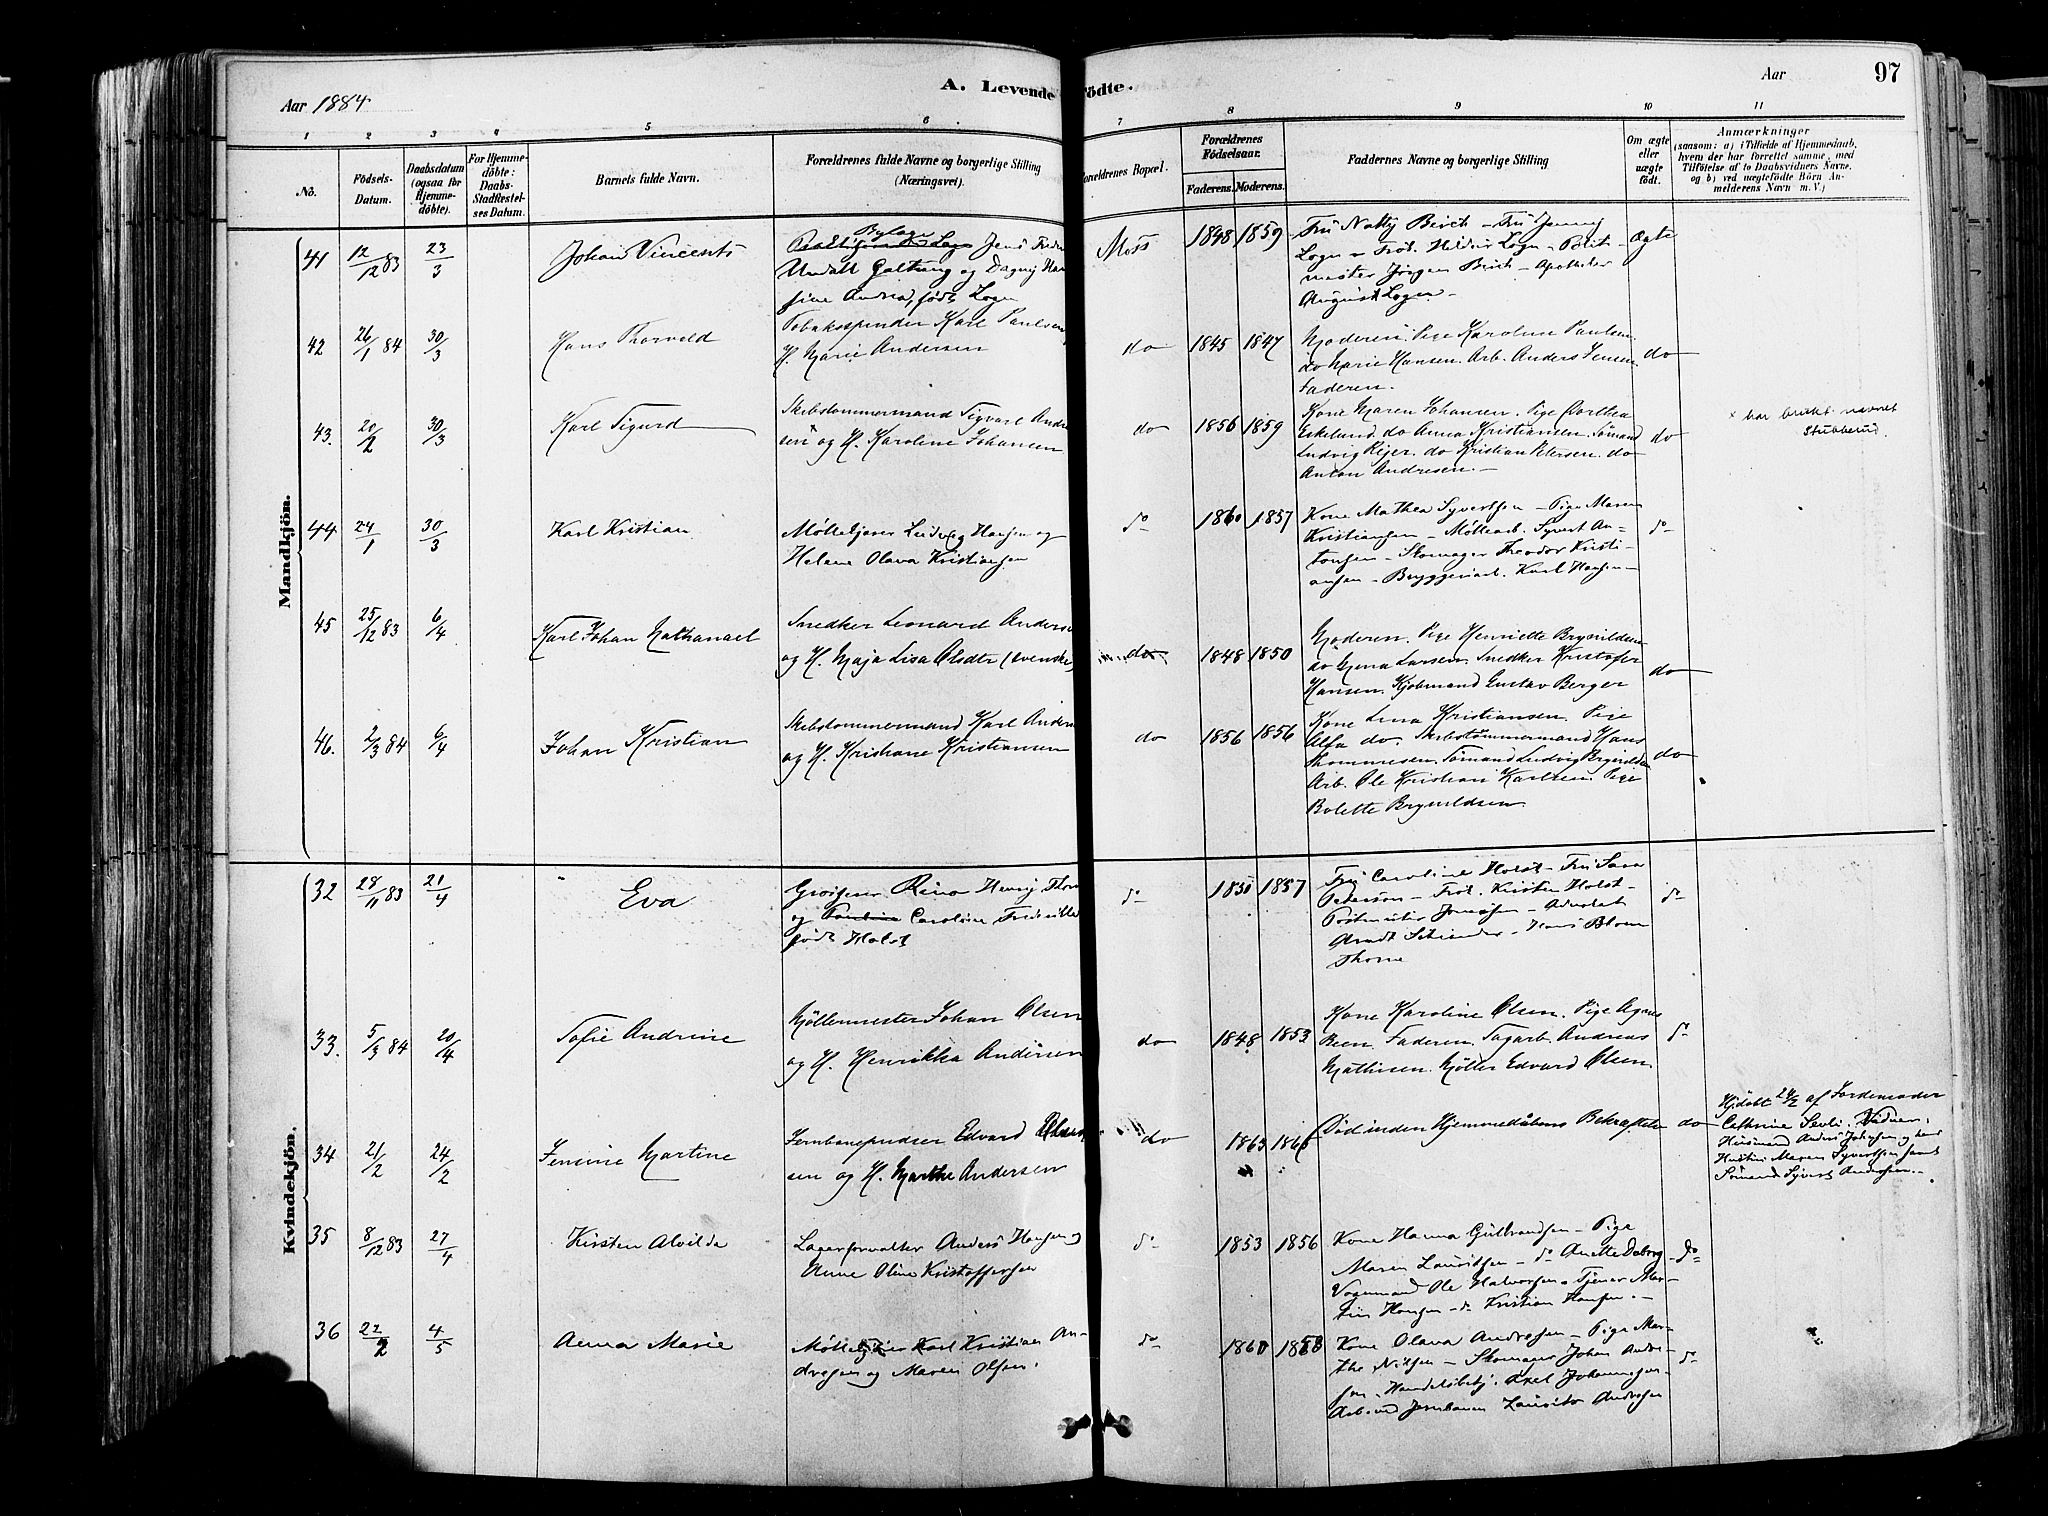 Aar 1884
A. Levende Fødte.
Aar
97
1 2 3 4 5 6 7 8 9 10 11
No.
Födsels-Datum.
Daabsdatum (ogsaa for Hjemme-döbte).
For Hjemme-döbte: Daabs-Stadfæstel-ses Datum.
Barnets fulde Navn.
Forældrenes fulde Navne og borgerlige Stilling (Næringsvei).
Forældrenes Bopæl.
Forældrenes Födselsaar.
Faderens. Moderens.
Faddernes Navne og borgerlige Stilling
Om ægte eller uægte født.
Anmærkninger
(saasom: a) i Tilfælde af Hjemmedaab,
hvem der har forrettet samme, med
Tilföielse af to Daabsvidners Navne,
og b) ved uægtefödte Börn An-
melderens Navn m. V.)
Mandkjön.
41 12/12 83 23/3 Johan Vincents
Jens
Undall Galtung og Dagny Han
sine Andrea, født Logn
Moss 1848 1859
Fru Natty Birch - Fru Jenny
Logn - Frøk. Logn - Politi-
mester Jørgen Birch - Apotheker
August Logn -
Ægte
42 26/1 84 30/3 Hans Thorvald
Tobaksspinder Karl Paulsen
H. Marie Andersen
do 1845 1847
Moderen. Pige Karoline Paulsen
do Marie Hansen. Arb. Anders Jensen
Faderen.
do
43. 20/2 30/3 Karl Sigurd
Skibstømmermand Sigvart Andre
sen og H. Karoline Johansen
do 1856 1859
Kone Maren Johansen. Pige Dorthea
Eskelund do Anna Kristiansen. Sømand
Ludvig Reier. do Kristian Petersen. do
Anton Andresen. -
do
× har brukt navnet
Stubberud.
44 24/1 30/3 Karl Kristian
Møllekjører Ludvig Hansen og
Helene Olava Kristiansen
do 1860 1857
Kone Mathea Syvertsen - Pige Maren
Kristiansen - Møllearb. Syvert An-
tonsen - Skomager Theodor Kristi-
ansen - Bryggeriarb. Karl Hansen -
do
45 25/12 83 6/4 Karl Johan Nathanael
Snedker Leonard Anders
og H. Maja Lisa Olsdtr (svenske)
do 1848 1850
Moderen. Pige Henriette Brynildsen
do Larsen. Snedker Kristofer
Hansen. Kjøbmand Gustav Berger
do
46. 2/3 84 6/4 Johan Kristian
Skibstømmermand Karl Anders
og H. Kristiane Kristiansen
do 1856 1856
Kone Lina Kristiansen. Pige
Alfa do. Skibstømmermand Hans
Thommesen. Sømand Ludvig Brynildsen
Arb. Ole Kristian Karlsen. Pige
Bolette Brynildsen
do
Kvindekjön.
32 28/11 83 21/4 Eva
Henrij Thor
og Caroline
født Holst
do 1857
Fru Caroline Holst - Fru Sara
Pederson - Frøk. Kirsten Holst -
Postmester - Advokat
Arndt - Hans Blom
Thorne
do
33. 5/3 84 20/4 Sofie Andrine
Møllemester Johan Olsen
og H. Henrikka Andersen
do 1848 1853
Kone Karoline Olsen. Pige Agnes
Been. Faderen. Sagarb. Andreas
Mathisen. Møller Edvard Olsen.
do
34 21/2 24/2 Jensine Martine
Jernbanepudser Edvard
sen og H. Marthe Andersen
do 1863
Død inden Hjemmedåbens Bekræftelse
do
Hjdøbt af Jordemoder
Cathrine
Husmand Anders Johnsen og hans
Hustru Maren Syvertsen samt
Sømand Syvert Andersen. -
35 8/12 83 27/4 Kirsten Alvilde
Lagerforvalter Anders Hansen og
Anne Oline Kristoffersen
do 1853 1856
Kone Hanna Gulbrandsen - Pige
Maren Lauritsen - do Anette
Vognmand Ole Halvorsen - Tjener Mar-
tin Hansen - do Kristian Hansen. -
do
36 4/5 Anna Marie
Karl Kristian An-
dresen og Maren Olsen.
do 1860
Kone Olava Andresen - Pige Mar-
the Nilsen - Skomager Johan Andre-
sen - Axel Johannesen -
Arb. ved Jernbanen Laurits Andresen
do